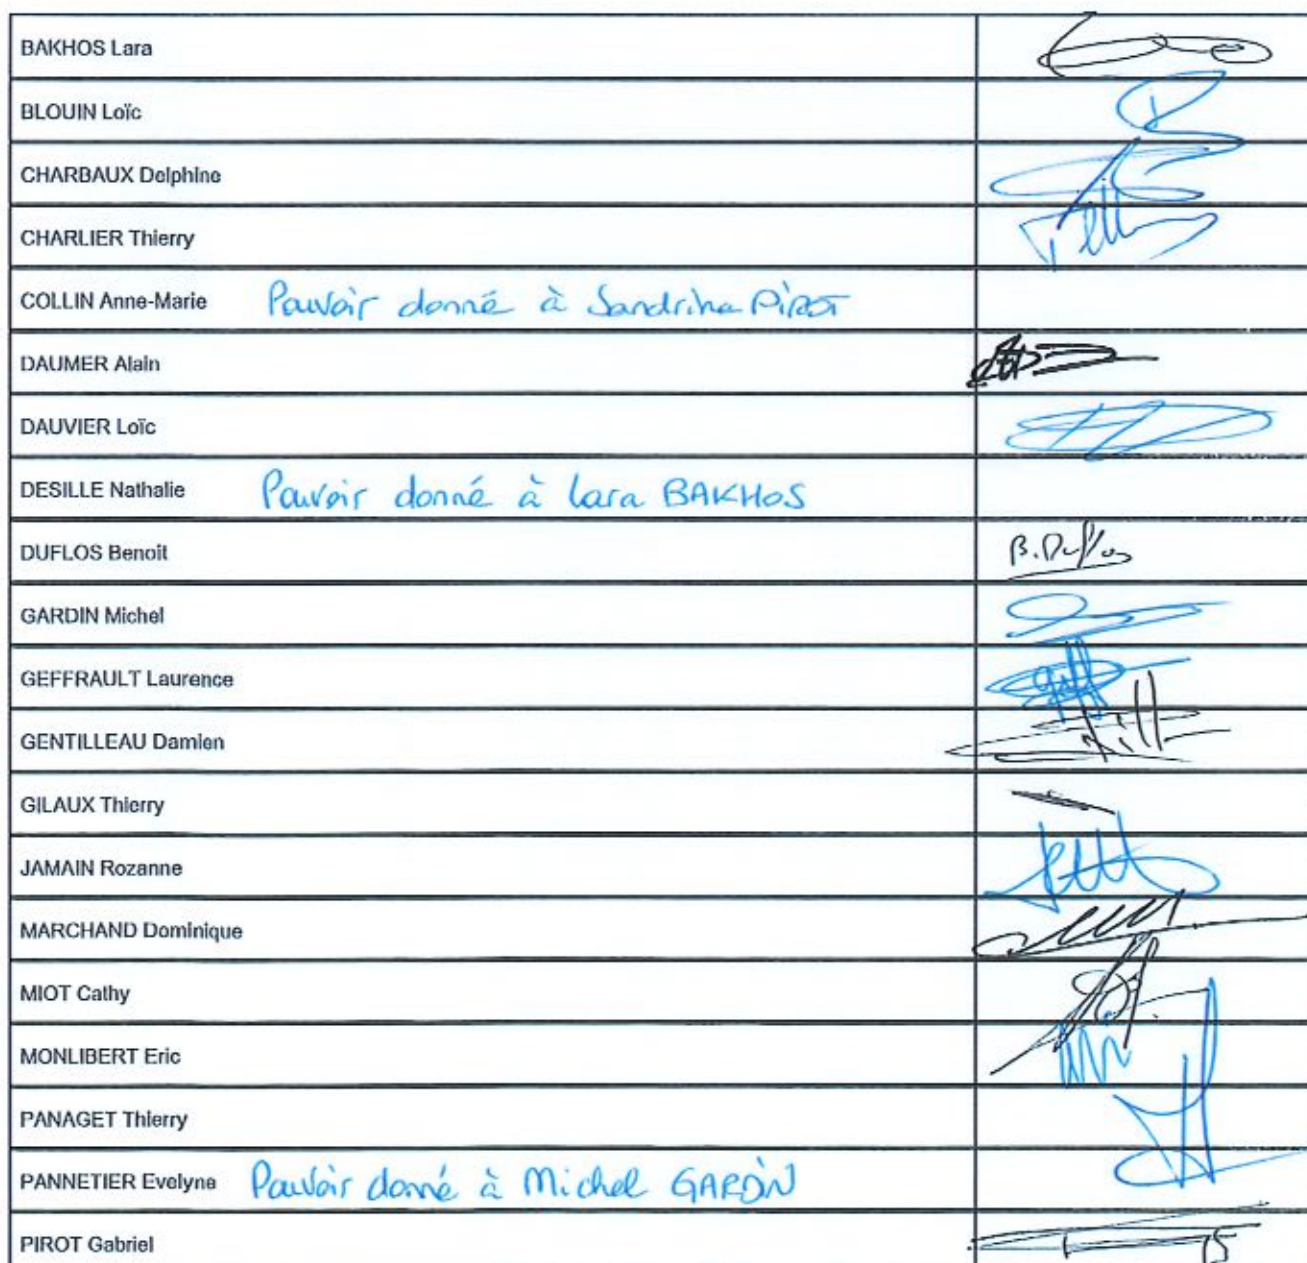 BAKHOS Lara
BLOUIN Loïc
CHARBAUX Delphine
CHARLIER Thierry
COLLIN Anne-Marie Pouvoir donné à Sandrine PIROT
DAUMER Alain
DAUVIER Loïc
DESILLE Nathalie Pouvoir donné à Lara BAKHOS
DUFLOS Benoit B. Duflos
GARDIN Michel
GEFFRAULT Laurence
GENTILLEAU Damien
GILAUX Thierry
JAMAIN Rozanne
MARCHAND Dominique
MIOT Cathy
MONLIBERT Eric
PANAGET Thierry
PANNETIER Evelyne Pouvoir donné à Michel GARDIN
PIROT Gabriel